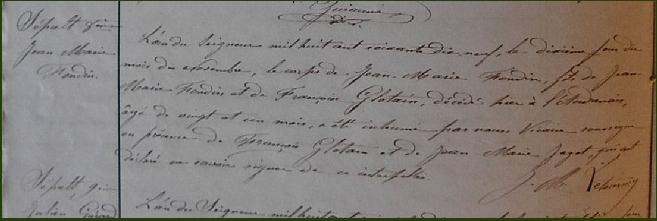 Sépult
Jean Marie
Hondin.
L'an du Seigneur mil huit cent soixante dix neuf, le dixième jour du
mois de novembre, le corps de Jean-Marie Hondin, fils de Jean
Marie Hondin et de Françoise Glotain, décédé hier à
âgé de vingt et un mois, a été inhumé par nous Vicaire soussigné
en présence de François Glotain et de Jean Marie Jagot qui ont
déclaré ne savoir signer de ce interpellés.
J. M.
Sépult
Julien
L'an du Seigneur mil huit cent